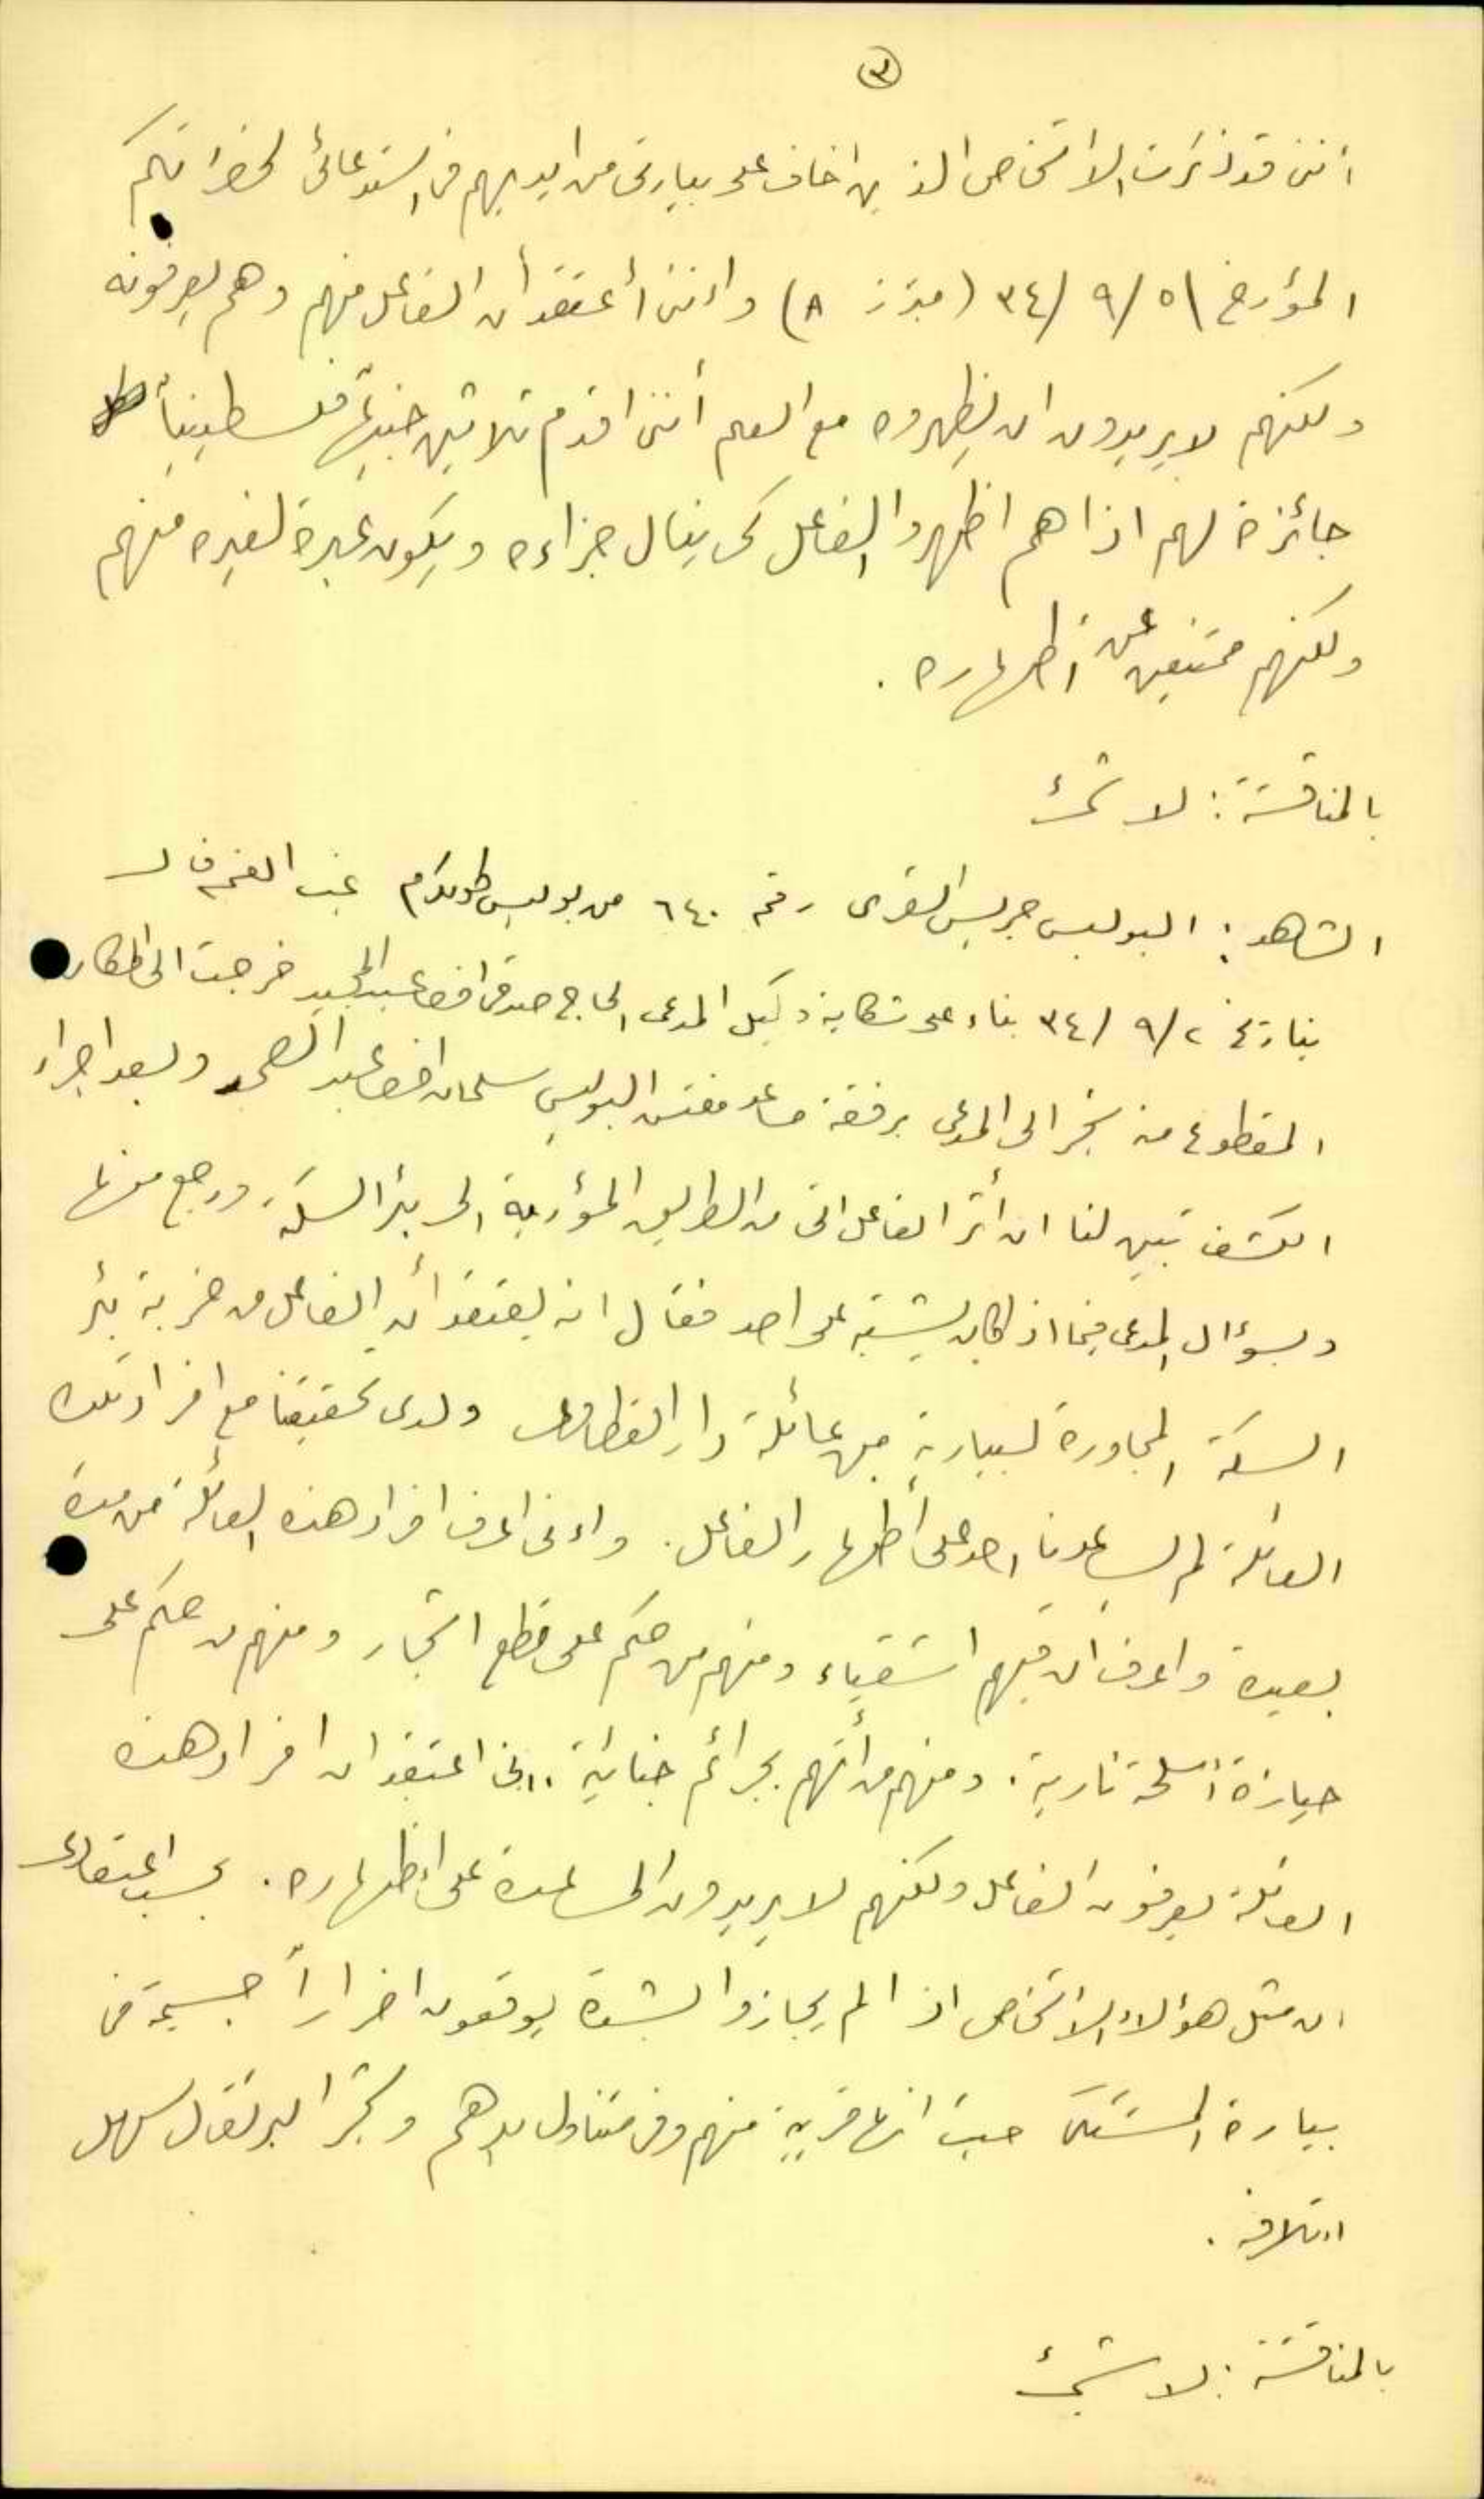 ٣
انني قد ذكرت الاشخاص الذين اخاف على بيارتي من ايديهم في استدعائي لحضراتكم
المؤرخ ٥/ ٩/ ٣٤ (مبرز A) وانني أعتقد أن الفاعل منهم وهم يعرفونه
ولكنهم لا يريدون ان يظهروه مع العلم أنني اقدم ثلاثين جنيهاً فلسطينياً
جائزة لهم اذا هم اظهروا الفاعل كي ينال جزاءه ويكون عبرة لغيره منهم
ولكنهم ممتنعين عن اظهاره .
بالمناقشة : لا شئ
الشاهد : البوليس جريس القرى رقم ٦٤٠ من بوليس طولكرم غب القسم قال
بتاريخ ٢/ ٩/ ٣٤ بناء على شكاية وكيل المدعي الحاج صدقي افندي عبد المجيد خرجت الى المكان
المقطوع منه شجر الى المدعي برفقة مساعد مفتش البوليس سلمان افندي عبد الصمد وبعد اجراء
الكشف تبين لنا ان أثر الفاعل اتى من الطريق المؤدية الى بئر السكة ورجع منها
وبسؤال المدعي فيما اذا كان يشتبه على احد فقال انه يعتقد أن الفاعل من خربة بئر
السكة المجاورة لبيارته من عائلة دار القطاوي ولدى تحقيقنا مع افراد تلك
العائلة لم يساعدنا احد على أظهار الفاعل. وانني اعرف افراد هذه العائلة من مدة
بعيدة واعرف ان فيهم اشقياء ومنهم من حكم على قطع اشجار ومنهم من حكم على
حيازة أسلحة نارية. ومنهم من أتهم بجرائم جنائية. انني اعتقد ان افراد هذه
العائلة يعرفون الفاعل ولكنهم لا يريدون المساعدة على اظهاره. بحسب اعتقادي
ان مثل هؤلاء الاشخاص اذا لم يجازوا بشدة يوقعون اضراراً جسيمة في
بيارة المشتكي حيث انها قريبة منهم وفي متناول يدهم وشجر البرتقال سهل
اتلافه .
بالمناقشة : لا شئ